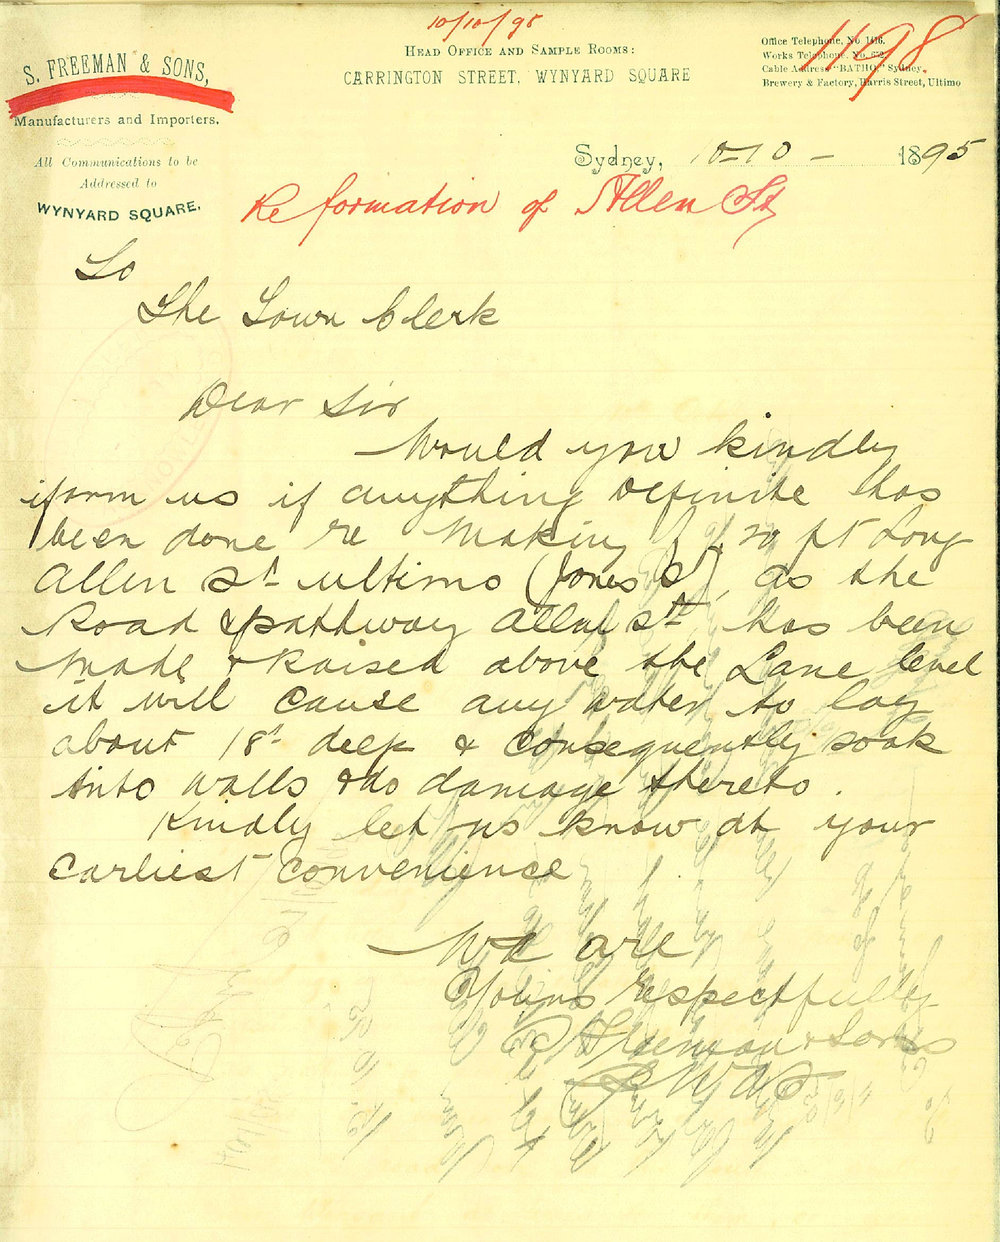 10/10/95
1198.
S. FREEMAN & SONS,
Manufacturers and Importers.
All Communications to be
Addressed to
WYNYARD SQUARE.
HEAD OFFICE AND SAMPLE ROOMS:
CARRINGTON STREET, WYNYARD SQUARE
Office Telephone, No. 1416.
Works Telephone, No. 652.
Cable Address "BATHO," Sydney.
Brewery & Factory, Harris Street, Ultimo
Sydney, 10-10- 1895
Re formation of Allen St
To
The Town Clerk
Dear Sir
Would you kindly
iform us if anything definite has
been done re Making 20 ft Long
Allen St ultimo (Jones St), as the
Road & pathway Allen St has been
Made & Raised above the Lane level
it will cause any water to lay
about 18" deep & consequently soak
into walls & do damage thereto.
Kindly let us know at your
Earliest convenience
We are
Yours respectfully
S Freeman & Sons